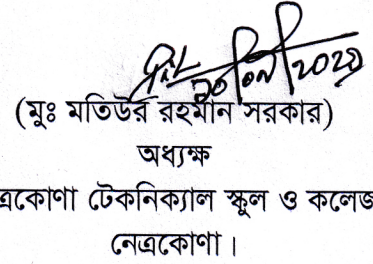 (মুঃ মতিউর রহমান সরকার)
অধ্যক্ষ
ত্রকোণা টেকনিক্যাল স্কুল ও কলেজ
নেত্রকোণা।